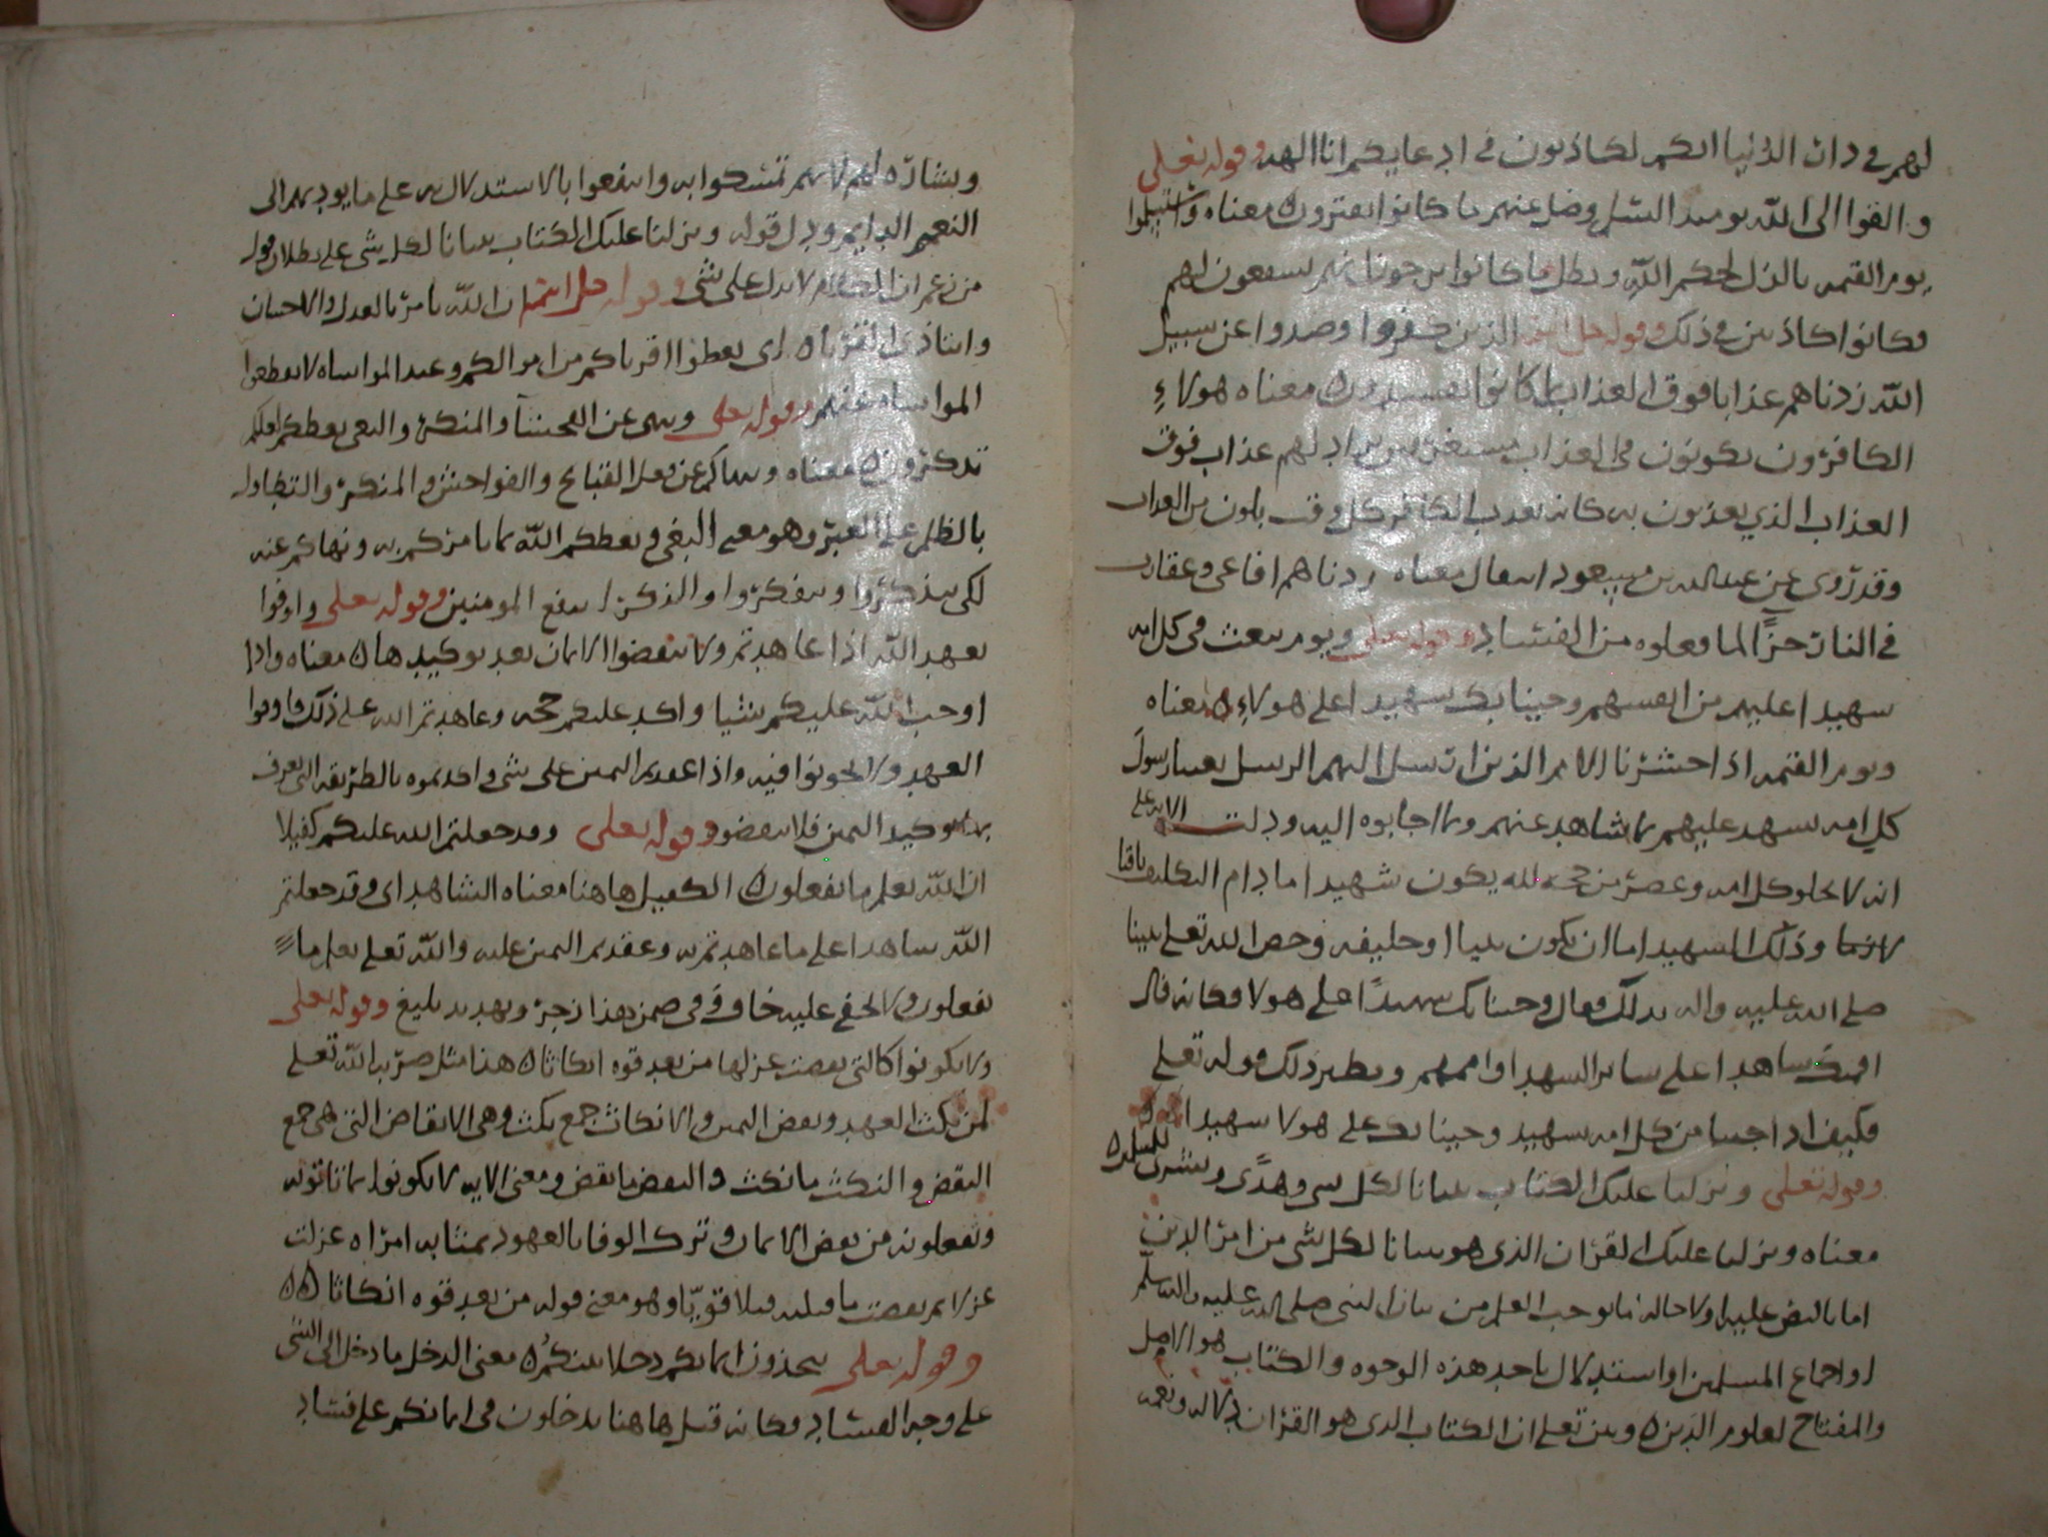 لهم في دار الدنيا انكم لكاذبون في ادعايكم انا الهه وقوله تعلى
والقوا الى الله يومئذ السلم وضل عنهم ما كانوا يفترون معناه واستسلموا
يوم القيمه بالذل لحكم الله وبطل ما كانوا يرجونا نهم يشفعون لهم
وكانوا كاذبين في ذلك وقوله جل اسمه الذين كفروا وصدوا عن سبيل
الله زدناهم عذابا فوق العذاب بما كانوا يفسدون معناه هولاء
الكافرون يكونون في العذاب مستقرين يزاد لهم عذاب فوق
العذاب الذي يعذبون به كانه يعذب الكافر كل وقت بلون من العذاب
وقد روى عن عبدالله بن مسعود انه قال معناه زدناهم افاعي وعقارب
في النار جزآ لما فعلوه من الفساد وقوله تعلى ويوم نبعث في كل امه
شهيدا عليهم من انفسهم وجينا بك شهيدا على هولاء معناه
ويوم القيمه اذا حشرنا الامم الذين ارسل اليهم الرسل بعثنا رسول
كل امه يشهد عليهم بما شاهد عنهم وبما اجابوه اليه ودلت الايه على
انه لا يخلو كل امه وعصر من حجه لله يكون شهيدا ما دام التكليف باقيا
وذلك الشهيد اما ان يكون نبيا او خليفه وخص الله تعلى نبينا
صلى الله عليه واله بذلك فقال وجينا بك شهيدًا على هولا فكانه قال
شاهدا على ساير الشهدا واممهم ونظير ذلك قوله تعلى
فكيف اذا جينا من كل امه بشهيد وجينا بك على هولا شهيدا
وقوله تعلى ونزلنا عليك الكتاب تبيانا لكل شي وهدًى وبشرى للمسلمين
معناه ونزلنا عليك القران الذي هو بيانا لكل شي من امر الدين
اما بالنص عليه او الاحاله ما يوجب العلم من بيان النبي صلى الله عليه واله وسلم
او اجماع المسلمين او استدلال باحد هذه الوجوه والكتاب هو الاصل
والمفتاح لعلوم الدين وبين تعلى ان الكتاب الذي هو القران دلاله ونعمه
وبشاره لهم لانهم تمسكوا به وانتفعوا بالاستدلال به على ما يوديهم الى
النعيم الدايم ودل قوله ونزلنا عليك الكتاب تبيانا لكل شي على بطلان قول
من زعم ان الكلام لا يدل على شي وقوله جل اسمه ان الله يامر بالعدل والاحسان
وايتاذي القربى اى يعطوا اقرباكم من اموالكم وعند المواساه لا يقطعوا
المواساه عنهم وقوله تعلى وينهى عن الفحشآ والمنكر والبغي يعظكم لعلكم
تذكرون معناه وينهاكم عن فعل القبايح والفواحش والمنكر والتطاول
بالظلم على الغير وهو معنى البغي ويعظكم الله بما يامركم به ونهاكم عنه
لكى يتذكروا ويتفكروا والذكرى ينفع المومنين وقوله تعلى واوفوا
بعهد الله اذا عاهدتم ولا تنقضوا الايمان بعد توكيدها معناه واذا
اوجب الله عليكم شيا واكد عليكم حجه وعاهدتم الله على ذلك فاوفوا
العهد ولا تخونوا فيه واذا عقدتم اليمين على شي واكدتموه بالطريقه التي يعرف
بها توكيد اليمين فلا تنقضوه وقوله تعلى وقد جعلتم الله عليكم كفيلا
ان الله يعلم ما تفعلون الكفيل هاهنا معناه الشاهد اى وقد جعلتم
الله شاهدا على ما عاهدتم به وعقدتم اليمين عليه والله تعلى يعلم ما
تفعلون ولا يخفى عليه خاف وفي ضمن هذا زجر وتهديد بليغ وقوله تعلى
ولا تكونوا كالتي نقضت غزلها من بعد قوه انكاثا هذا مثل ضربه الله تعلى
لمن نكث العهد ونقض اليمين والانكاث جمع نكث وهي الانقاض التي هي جمع
النقض والنكث ما نكث والنقض ما نقض ومعنى الايه لا تكونوا بما تاتونه
وتفعلونه من نقض الايمان وترك الوفا بالعهود بمثابه امراه غزلت
غزلا ثم نقضت ما فتلته فتلا قويّا وهو معنى قوله من بعد قوه انكاثا
وقوله تعلى تتخذون ايمانكم دخلا بينكم معنى الدخل ما دخل الى الشي
على وجه الفساد فكانه قيل هاهنا يدخلون في ايمانكم على فساد